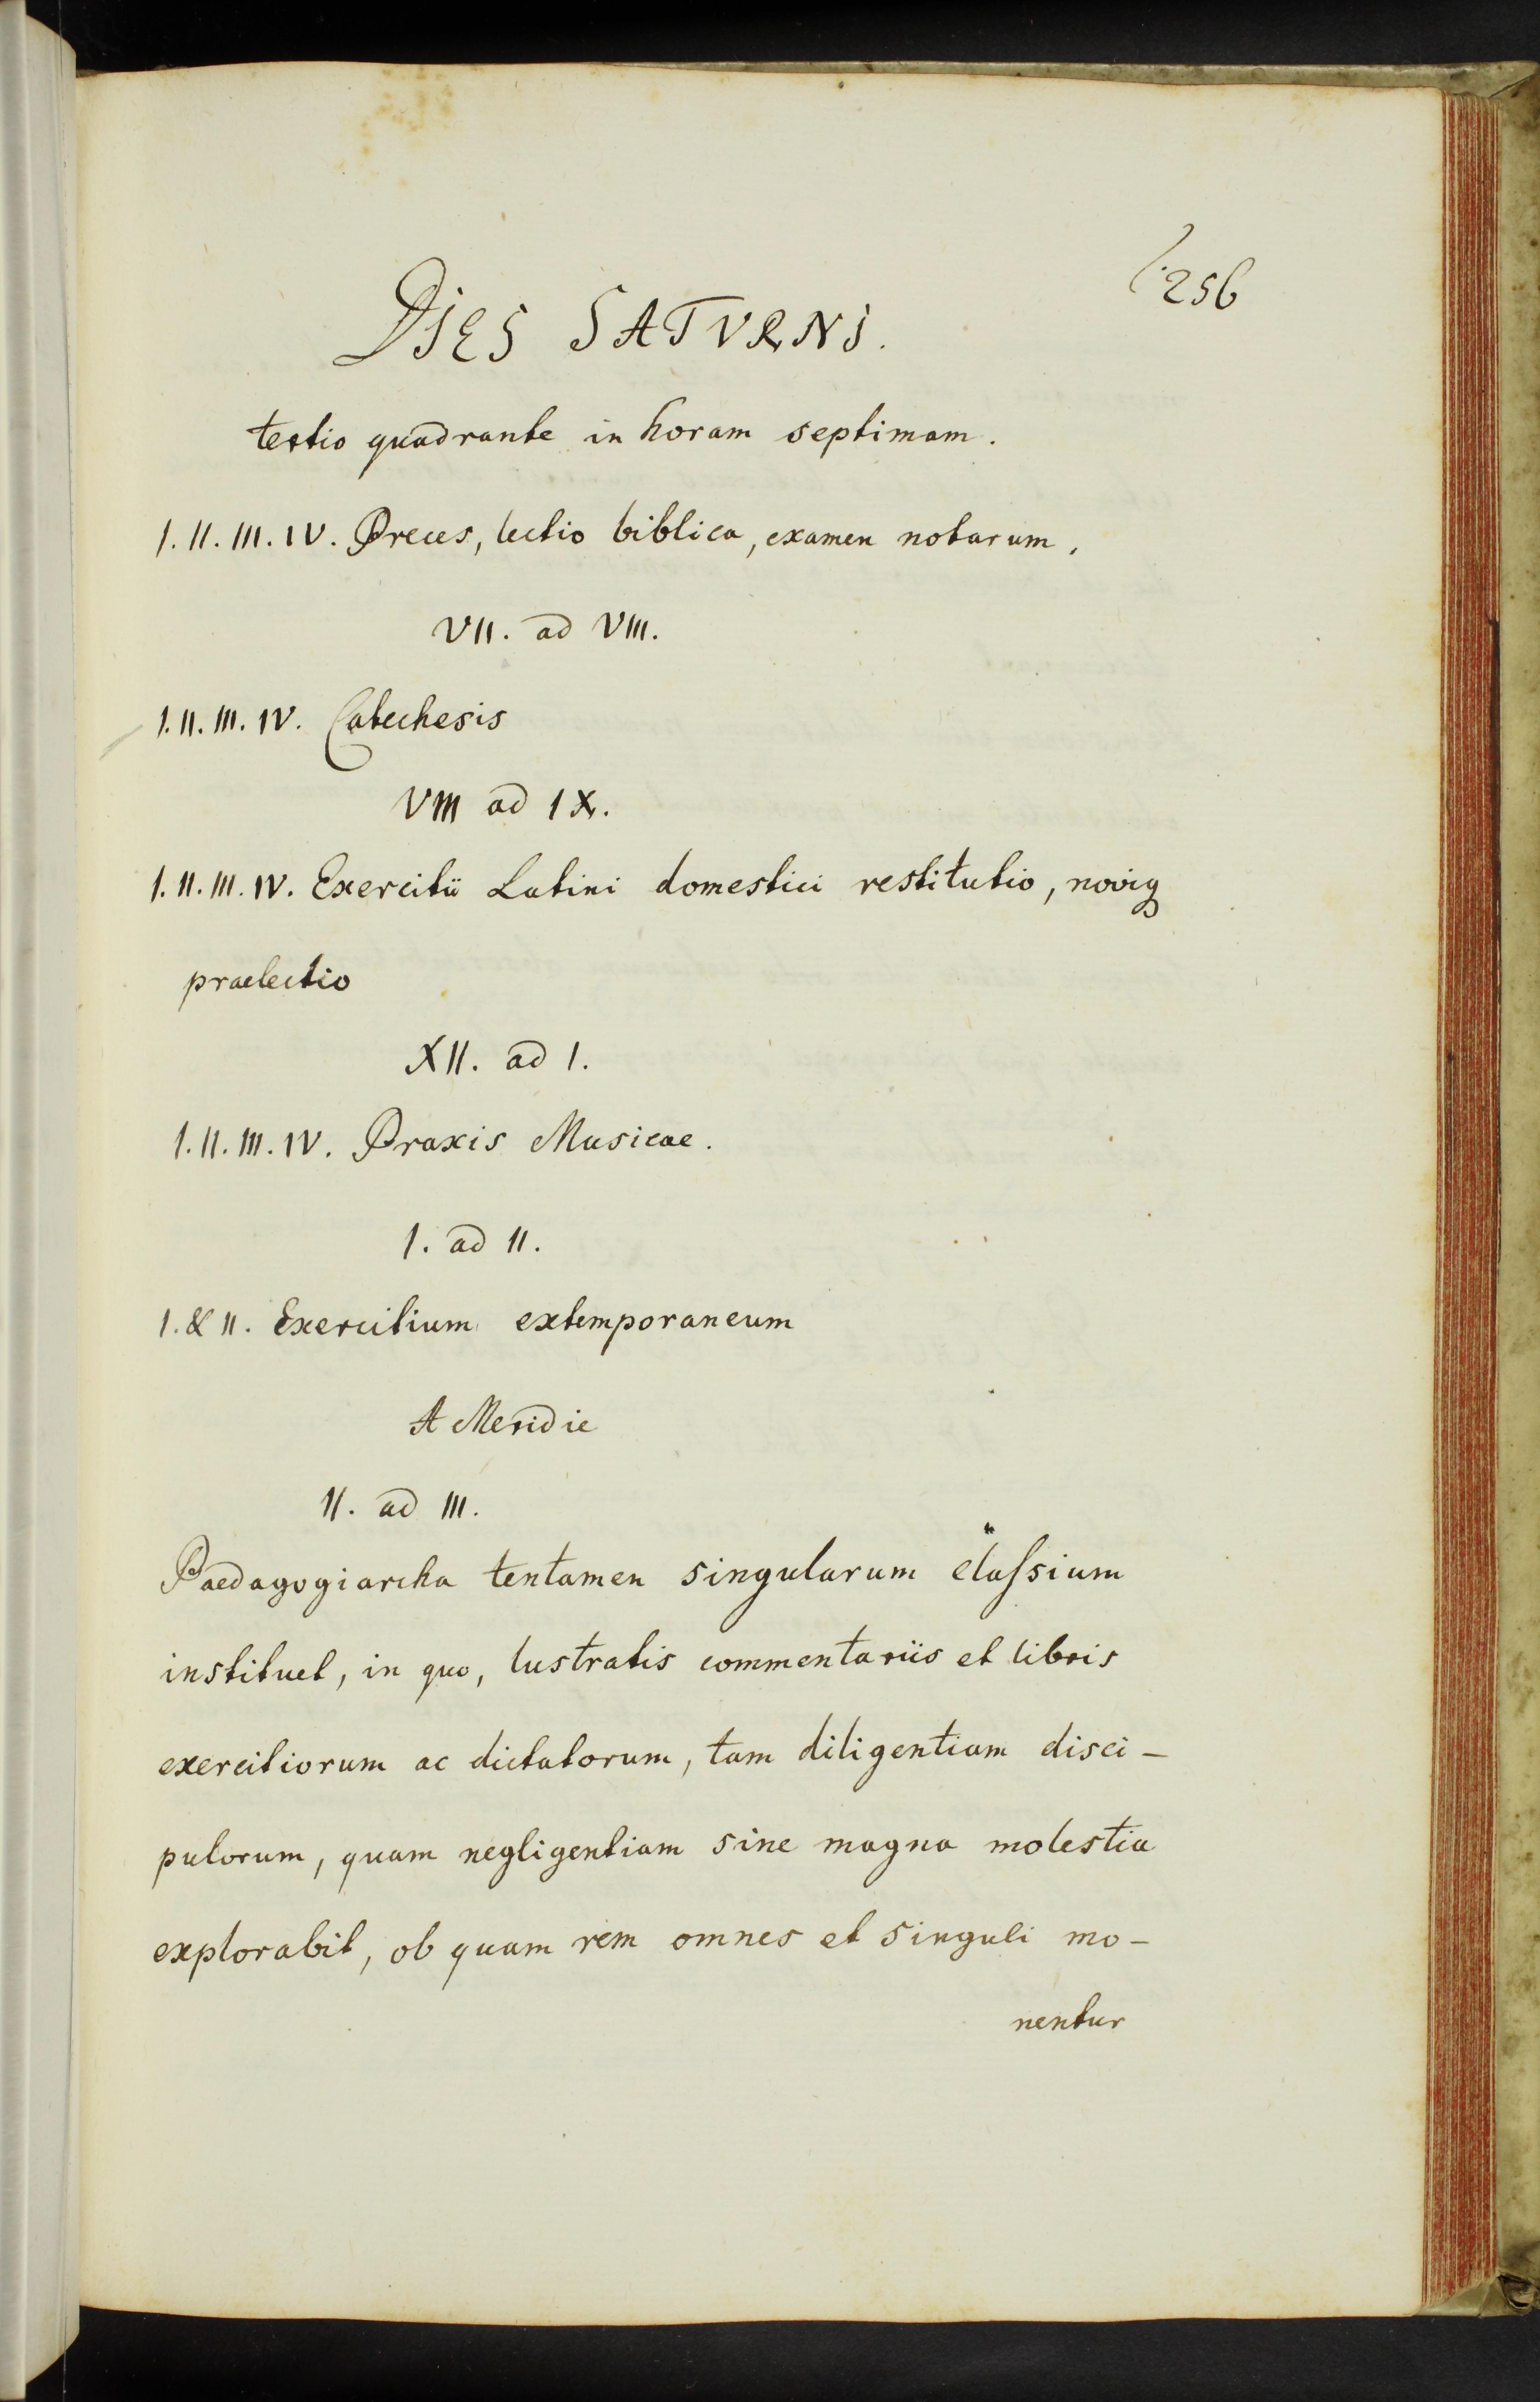 256
DIES SATVRNI.
tertio quadrante in horam septimam.
I. II. III. IV. Preces, lectio biblica, examen notarum,
VII. ad VIII.
I. II. III. IV. Catechesis
VIII ad IX.
I. II. III. IV. Exercitii Latini domestici restitutio, noviq
praelectio
XII. ad I.
I. II. III. IV. Praxis Musicae.
I. ad II.
I. & II. Exercitium extemporaneum
A Meridie
II. ad III.
Paedagogiarcha tentamen singularum classium
instituet, in quo, lustratis commentariis et libris
exercitiorum ac dictatorum, tam diligentiam disci-
pulorum, quam negligentiam sine magna molestia
explorabit, ob quam rem omnes et singuli mo-
nentur